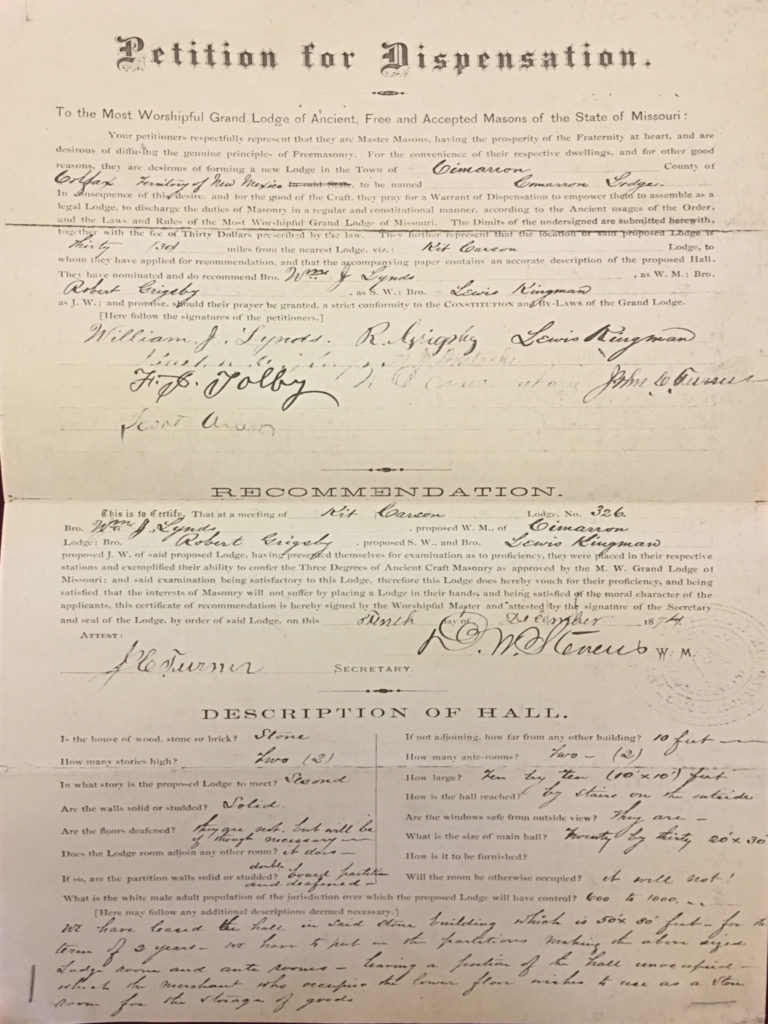 Petition for Dispensation.
To the Most Worshipful Grand Lodge of Ancient, Free and Accepted Masons of the State of Missouri:
Your petitioners respectfully represent that they are Master Masons, having the prosperity of the Fraternity at heart, and are
desirous of diffusing the genuine principles of Freemasonry. For the convenience of their respective dwellings, and for other good
reasons, they are desirous of forming a new Lodge in the Town of Cimarron County of
Colfax Territory of New Mexico in said State, to be named Cimarron Lodge.
In consequence of this desire, and for the good of the Craft, they pray for a Warrant of Dispensation to empower them to assemble as a
legal Lodge, to discharge the duties of Masonry in a regular and constitutional manner, according to the Ancient usages of the Order,
and the Laws and Rules of the Most Worshipful Grand Lodge of Missouri. The Dimits of the undersigned are submitted herewith,
together with the fee of Thirty Dollars prescribed by the law. They further represent that the location of said proposed Lodge is
Thirty (30) miles from the nearest Lodge, viz.: Kit Carson Lodge, to
whom they have applied for recommendation, and that the accompanying paper contains an accurate description of the proposed Hall.
They have nominated and do recommend Bro. Wm J Lynds, as W. M.: Bro.
Robert Grigsby, as S. W.: Bro. Lewis Kingman
as J. W.; and promise, should their prayer be granted, a strict conformity to the Constitution and By-Laws of the Grand Lodge.
[Here follow the signatures of the petitioners.]
William J. Lynds. R. Grigsby Lewis Kingman
F. J. Tolby John C Turner
RECOMMENDATION.
This is to Certify, That at a meeting of Kit Carson Lodge, No. 326.
Bro. Wm J. Lynds, proposed W. M., of Cimarron
Lodge: Bro. Robert Grigsby, proposed S. W., and Bro. Lewis Kingman
proposed J. W. of said proposed Lodge, having presented themselves for examination as to proficiency, they were placed in their respective
stations and exemplified their ability to confer the Three Degrees of Ancient Craft Masonry as approved by the M. W. Grand Lodge of
Missouri; and said examination being satisfactory to this Lodge, therefore this Lodge does hereby vouch for their proficiency, and being
satisfied that the interests of Masonry will not suffer by placing a Lodge in their hands, and being satisfied of the moral character of the
applicants, this certificate of recommendation is hereby signed by the Worshipful Master and attested by the signature of the Secretary
and seal of the Lodge, by order of said Lodge, on this day of December 1874.
Attest: D. W. Stevens W. M.
J C Turner Secretary.
DESCRIPTION OF HALL.
Is the house of wood, stone or brick? Stone
How many stories high? Two (2)
In what story is the proposed Lodge to meet? Second
Are the walls solid or studded? Solid.
Are the floors deafened? they are not. but will be if though necessary
Does the Lodge room adjoin any other room? it does
If so, are the partition walls solid or studded? double board partition and deafened
If not adjoining, how far from any other building? 10 feet
How many ante-rooms? Two (2)
How large? Ten by Ten (10'x10') feet
How is the hall reached? by stairs on the outside
Are the windows safe from outside view? They are
What is the size of main hall? Twenty by thirty 20'x30'
How is it to be furnished?
Will the room be otherwise occupied? it will not!
What is the white male adult population of the jurisdiction over which the proposed Lodge will have control? 600 to 1000.
[Here may follow any additional descriptions deemed necessary.]
We have leased the hall in said stone building which is 50'x30' feet - for the
term of 2 years - we have to put in the partitions making the above sized
Lodge room and ante rooms - leaving a portion of the hall unoccupied -
which the merchant who occupies the lower floor wishes to use as a Store
room for the storage of goods